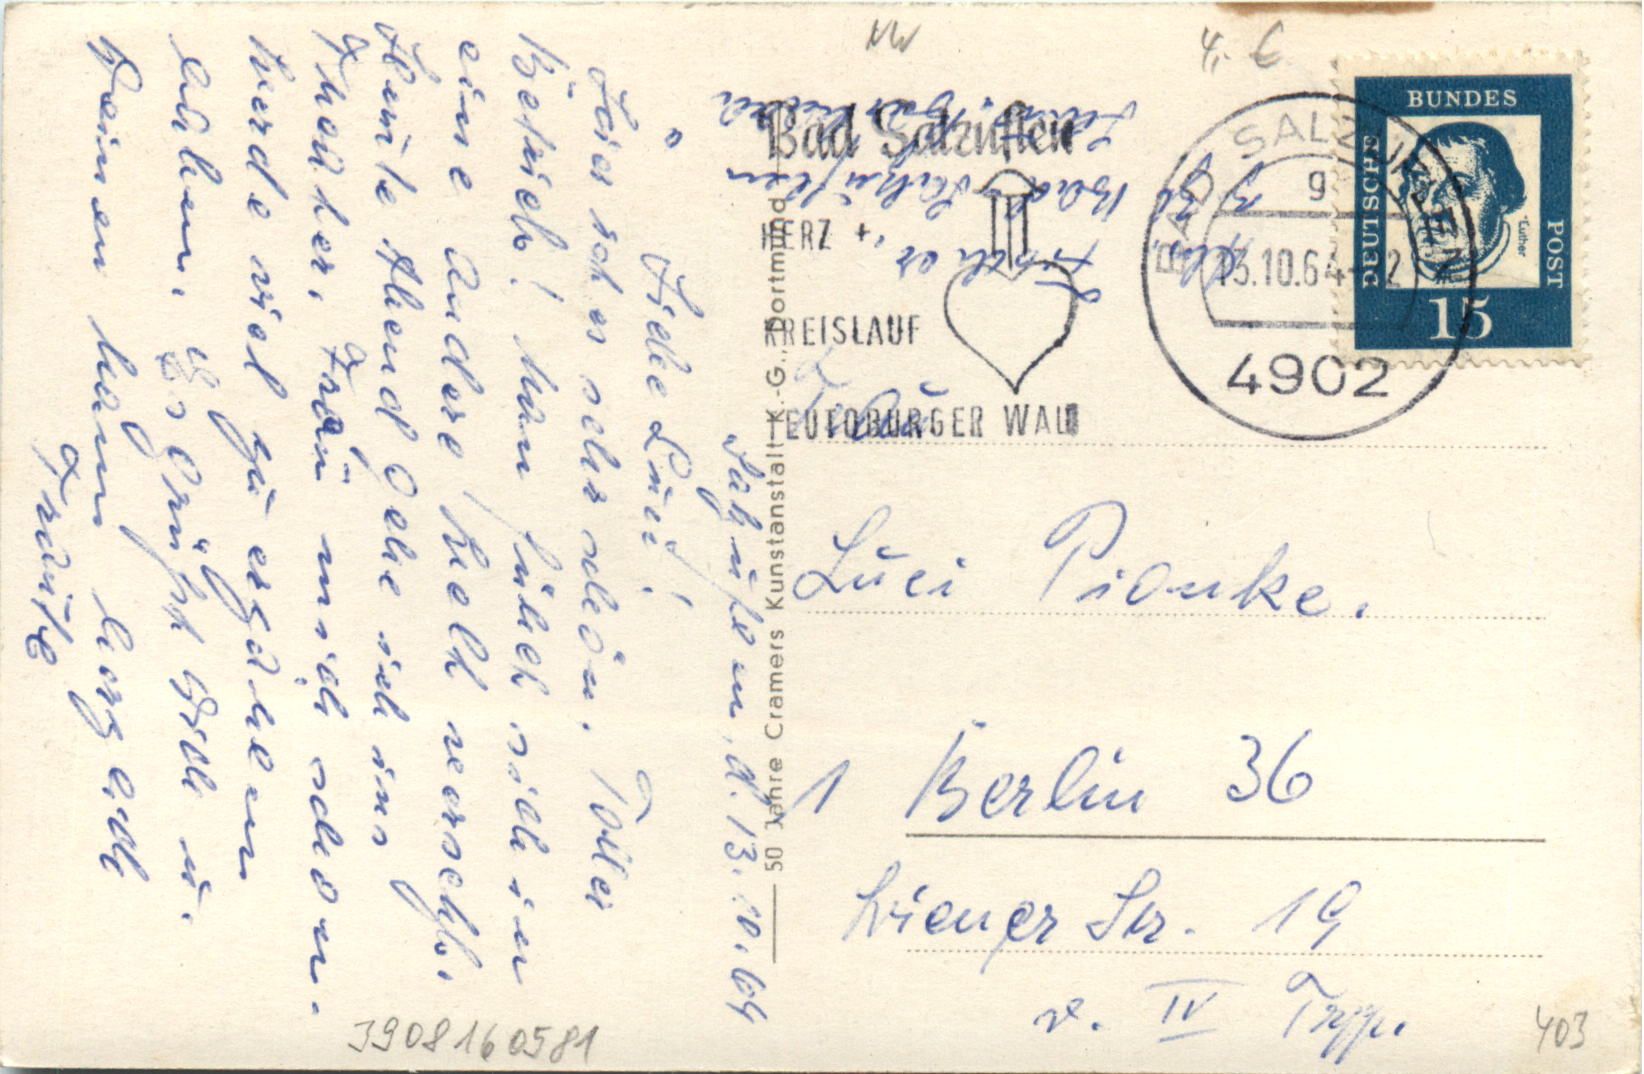 Salzuflen, d. 13.10.64
Liebe Luci!
Hier ist es sehr schön. Toller
Betrieb! Man fühlt sich in
eine andere Welt versetzt.
Heute Abend gehe ich ins
Theater, freu mich schon.
Werde viel zu erzählen
haben. Es grüßt Dich u.
Deinen Mann herzlich
Trautel
Bad Salzuflen
HERZ +
KREISLAUF
TEUTOBURGER WALD
Bad Salzuflen
BAD SALZUFLEN
g
13.10.64
4902
DEUTSCHE
BUNDES
POST
Luther
15
50 Jahre Cramers Kunstanstalt K.-G., Dortmund
Frau
Luci Pionke.
1 Berlin 36
Wiener Str. 19
v. IV Trpp.
3908160581
403